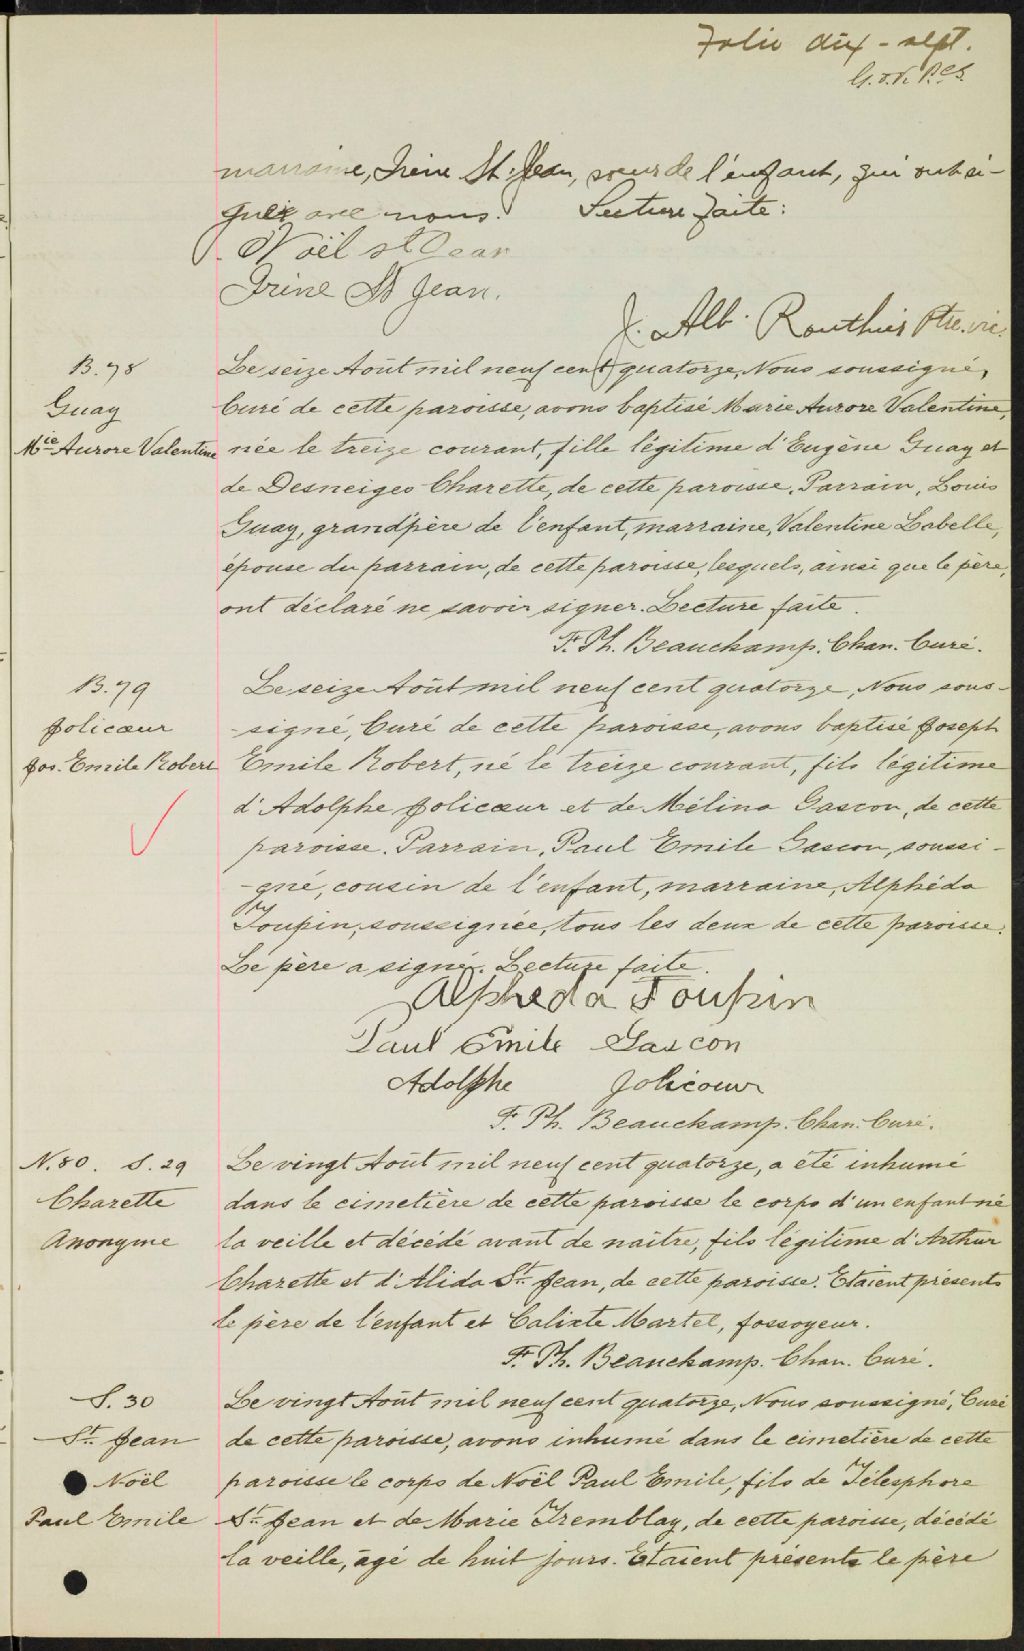 Folio dix-sept.
marraine, Irène St. Jean, soeur de l'enfant, qui ont si-
gné avec nous. Lecture faite:
Noël st Jean
Irène St Jean.
J. Alb. Routhier Ptre. vic.
B. 78
Guay
Mie Aurore Valentine
Le seize Août mil neuf cent quatorze, Nous soussigné,
Curé de cette paroisse, avons baptisé Marie Aurore Valentine,
née le treize courant, fille légitime d'Eugène Guay et
de Desneiges Charette, de cette paroisse. Parrain, Louis
Guay, grand'père de l'enfant, marraine, Valentine Labelle,
épouse du parrain, de cette paroisse, lesquels, ainsi que le père,
ont déclaré ne savoir signer. Lecture faite.
F. Ph. Beauchamp. Chan. Curé.
B. 79
Jolicœur
Jos. Emile Robert
Le seize Août mil neuf cent quatorze, Nous sous-
-signé, Curé de cette paroisse, avons baptisé Joseph
Emile Robert, né le treize courant, fils légitime
d'Adolphe Jolicœur et de Mélina Gascon, de cette
paroisse. Parrain, Paul Emile Gascon, soussi-
-gné, cousin de l'enfant, marraine, Alphéda
Toupin, soussignée, tous les deux de cette paroisse.
Le père a signé. Lecture faite.
Alpheda Toupin
Paul Emile Gascon
Adolphe Jolicoeur
F. Ph. Beauchamp. Chan. Curé.
N. 80. S. 29
Charette
Anonyme
Le vingt Août mil neuf cent quatorze, a été inhumé
dans le cimetière de cette paroisse le corps d'un enfant né
la veille et décédé avant de naître, fils légitime d'Arthur
Charette et d'Alida St. Jean, de cette paroisse. Etaient présents
le père de l'enfant et Calixte Martel, fossoyeur.
F. Ph. Beauchamp. Chan. Curé.
S. 30
St. Jean
Noël
Paul Emile
Le vingt Août mil neuf cent quatorze, Nous soussigné, Curé
de cette paroisse, avons inhumé dans le cimetière de cette
paroisse le corps de Noël Paul Emile, fils de Télesphore
St. Jean et de Marie Tremblay, de cette paroisse, décédé
la veille, âgé de huit jours. Etaient présents le père